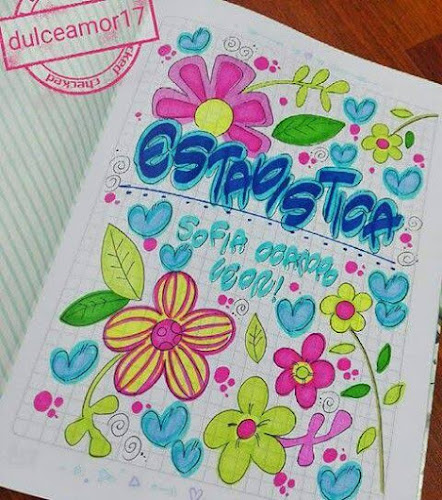 dulceamor17
checked
ESTADISTICA
SOFIA OCAMPO
LEON!